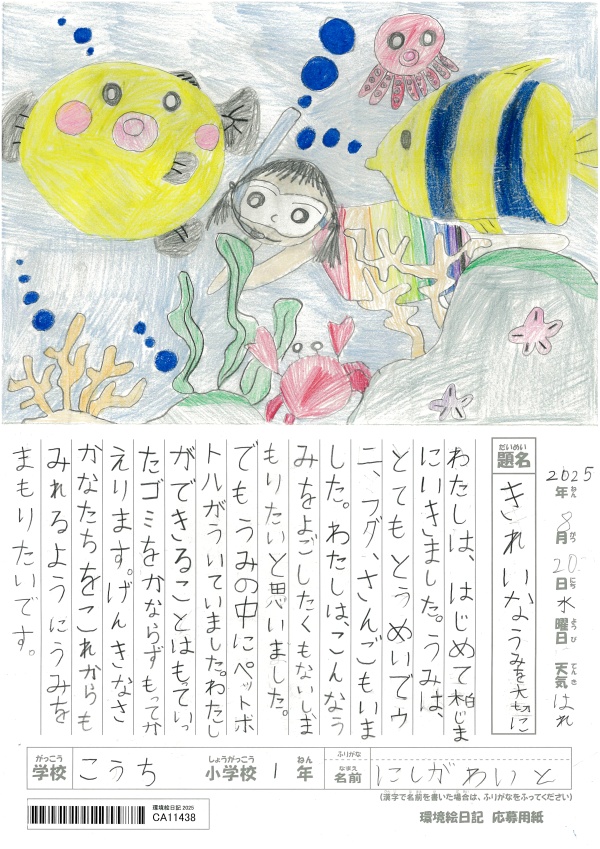 2025年ねん 8月がつ 20日にち 水曜日ようび 天気てんき はれ
題名だいめい きれいなうみを大切に
わたしは、はじめて柏じま
にいきました。うみは、
とてもとうめいでウ
ニ、フグ、さんごもいま
した。わたしは、こんなう
みをよごしたくもないしま
もりたいと思いました。
でもうみの中にペットボ
トルがういていました。わたし
ができることはもっていっ
たゴミをかならずもってか
えります。げんきなさ
かなたちをこれからも
みれるようにうみを
まもりたいです。
学校がっこう こうち 小学校しょうがっこう 1年ねん ふりがな 名前なまえ にしがわいと
(漢字で名前を書いた場合は、ふりがなをふってください)
環境絵日記 2025
CA11438
環境絵日記 応募用紙